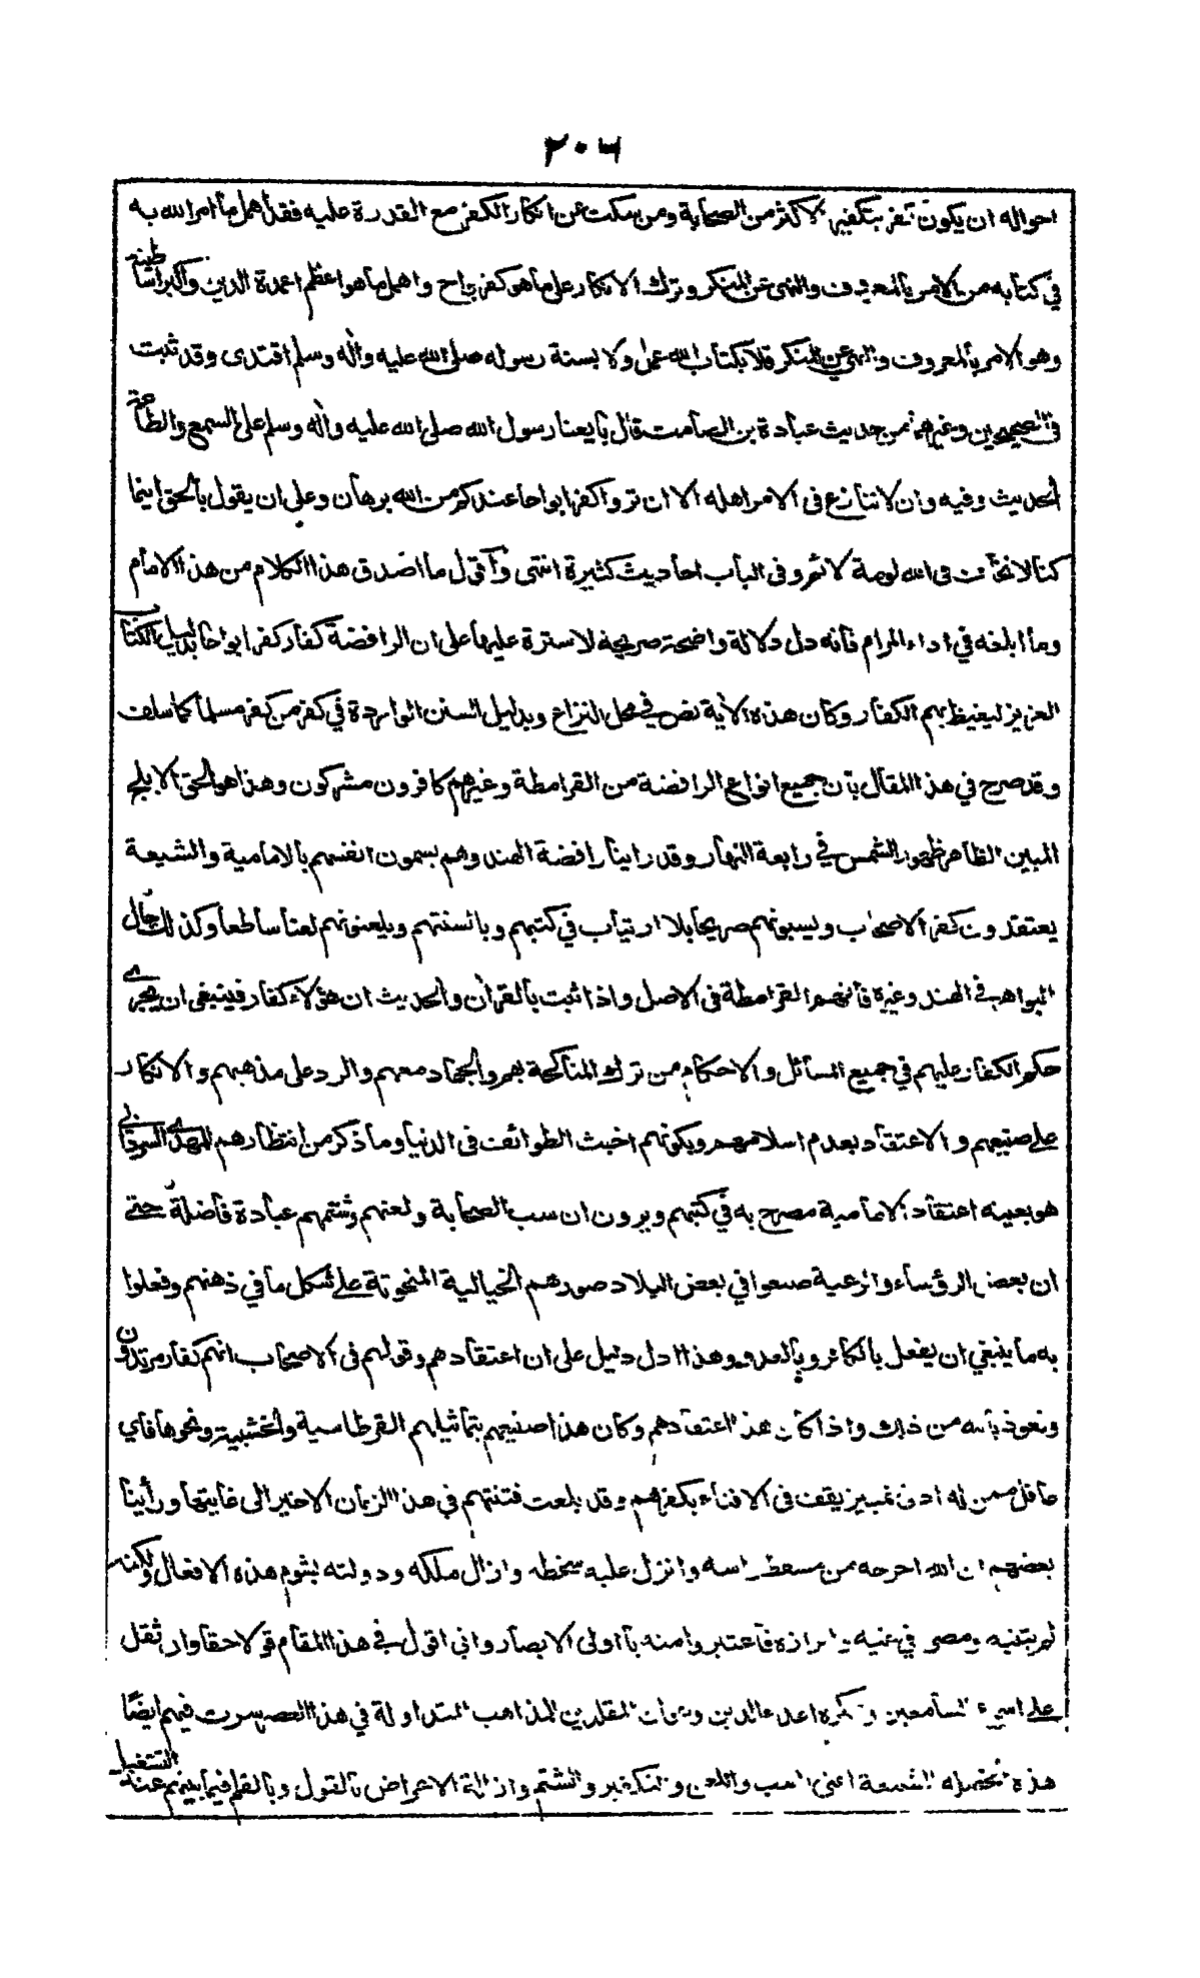 ٢٠٦
احواله ان يكون كفر بتكفير الاكثر من الصحابة ومن سكت عن انكار الكفر مع القدرة عليه فقد اهمل ما امر الله به
في كتابه من الامر بالمعروف والنهي عن المنكر وترك الانكار على ما هو كفر بواح واهمل ما هو اعظم اعمدة الدين واكبر اساطينه
وهو الامر بالمعروف والنهي عن المنكر فلا بكتاب الله عمل ولا بسنة رسوله صلى الله عليه واله وسلم اقتدى وقد ثبت
في الصحيحين وغيرهما من حديث عبادة بن الصامت قال بايعنا رسول الله صلى الله عليه واله وسلم على السمع والطاعة
الحديث وفيه وان لا ننازع في الامر اهله الا ان تروا كفرا بواحا عندكم من الله برهان وعلى ان يقول بالحق اينما
كنا لا نخاف في الله لومة لائم وفي الباب احاديث كثيرة انتهى وأقول ما اصدق هذا الكلام من هذا الامام
وما ابلغه في اداء المرام فانه دل دلالة واضحة صريحة لا سترة عليها على ان الرافضة كفار كفرا بواحا بدليل الكتاب
العزيز ليغيظ بهم الكفار وكان هذه الآية نص في محل النزاع وبدليل السنن الواردة في كفر من كفر مسلما كما سلف
وقد صرح في هذا المقال بان جميع انواع الرافضة من القرامطة وغيرهم كافرون مشركون وهذا هو الحق الابلج
المبين الظاهر ظهور الشمس في رابعة النهار وقد راينا رافضة الهند وهم يسمون انفسهم بالامامية والشيعة
يعتقدون كفر الاصحاب ويسبونهم صريحا بلا ارتياب في كتبهم وبالسنتهم ويلعنونهم لعنا ساطعا وكذلك حال
البواهر في الهند وغيره فانهم القرامطة في الاصل واذا ثبت بالقرآن والحديث ان هؤلاء كفار فينبغي ان يجرى
حكم الكفار عليهم في جميع المسائل والاحكام من ترك المناكحة بهم والجهاد معهم والرد على مذهبهم والانكار
على صنيعهم والاعتقاد بعدم اسلامهم وبكونهم اخبث الطوائف في الدنيا وما ذكر من انتظارهم للمهدي السردابي
هو بعينه اعتقاد الامامية مصرح به في كتبهم ويرون ان سب الصحابة ولعنهم وشتمهم عبادة فاضلة حتى
ان بعض الرؤساء والرعية صنعوا في بعض البلاد صورهم الخيالية المنحوتة على شكل ما في ذهنهم وفعلوا
به ما ينبغي ان يفعل بالكافر وبالعدو وهذا ادل دليل على ان اعتقادهم وقولهم في الاصحاب انهم كفار مرتدون
ونعوذ بالله من ذلك واذا كان هذا اعتقادهم وكان هذا صنيعهم بتماثيلهم القرطاسية والخشبية ونحوها فاي
عاقل ممن له ادنى تمييز يقف في الافتاء بكفرهم وقد بلغت فتنتهم في هذا الزمان الاخير الى غايتها ورأينا
بعضهم ان الله اخرجه من مسقط راسه وانزل عليه سخطه وازال ملكه ودولته بشوم هذه الافعال ولكنه
لم ينتبه ومصر في غيه فاعتبروا منه يا اولى الابصار واني اقول في هذا المقام قولا حقا وان ثقل
على السامعين وان المقلدين للمذاهب المتداولة في هذا العصر سرت فيهم ايضا
هذه الخصلة الشنيعة اعني السب واللعن والتكفير والشتم وازالة الاعراض بالقول وبالقلم فيما بينهم عند